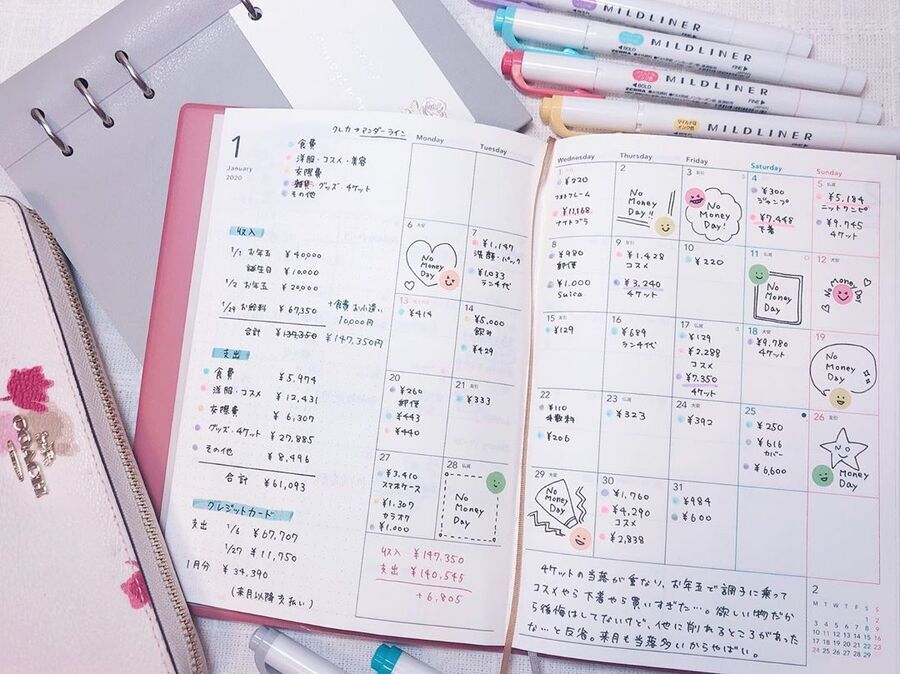 MILDLINER
MILDLINER
MILDLINER
MILDLINER
FINE
BOLD
FINE
BOLD
FINE
BOLD
FINE
COACH
1
January
2020
クレカ→アンダーライン
食費
洋服・コスメ・美容
交際費
グッズ・チケット
その他
収入
1/1 お年玉 ¥40,000
誕生日 ¥10,000
1/2 お年玉 ¥20,000
お給料 ¥67,350
+食費 お小遣い
10,000円
合計 ¥137,350 ¥147,350円
支出
食費 ¥5,974
洋服・コスメ ¥12,431
交際費 ¥6,307
グッズ・チケット ¥27,885
その他 ¥8,496
合計 ¥61,093
クレジットカード
支出 1/6 ¥67,707
1/27 ¥11,750
1月分 ¥34,390
(来月以降支払い)
Monday Tuesday Wednesday Thursday Friday Saturday Sunday
1
¥220
フォトフレーム
¥11,168
ナイトブラ
2
No
Money
Day!!
3 友引
No
Money
Day!
4
¥300
ジャンプ
¥7,448
下着
5
¥5,184
ニットワンピ
¥9,745
チケット
6 大安
No
Money
Day
7
¥1,147
洗顔・パック
¥1,033
ランチ代
8
¥980
郵便
¥1,000
Suica
9
¥1,428
コスメ
¥3,240
チケット
10
¥220
11 仏滅
No
Money
Day
12 大安
No
Money
Day
13
¥414
14
¥5,000
飲み
¥429
15
¥129
16
¥689
ランチ代
17 仏滅
¥129
¥2,288
コスメ
¥7,350
チケット
18 大安
¥9,780
チケット
19
No
Money
Day
20
¥260
郵便
¥443
¥440
21 友引
¥333
22
¥110
手数料
¥206
23 仏滅
¥323
24 大安
¥392
25
¥250
¥616
カバー
¥6,600
26
No
Money
Day
27
¥3,410
スマホケース
¥1,307
カラオケ
¥1,000
28
No
Money
Day
29
No
Money
Day
30
¥1,760
¥4,290
コスメ
¥2,838
31
¥984
¥600
収入 ¥147,350
支出 ¥140,545
+6,805
チケットの当落が重なり、お年玉で調子に乗って
コスメやら下着やら買いすぎた…。欲しい物だか
ら後悔はしてないけど、他に削れるところがあった
な…と反省。来月も当落多いからやばい。
2
M T W T F S S
1 2
3 4 5 6 7 8 9
10 11 12 13 14 15 16
17 18 19 20 21 22 23
24 25 26 27 28 29